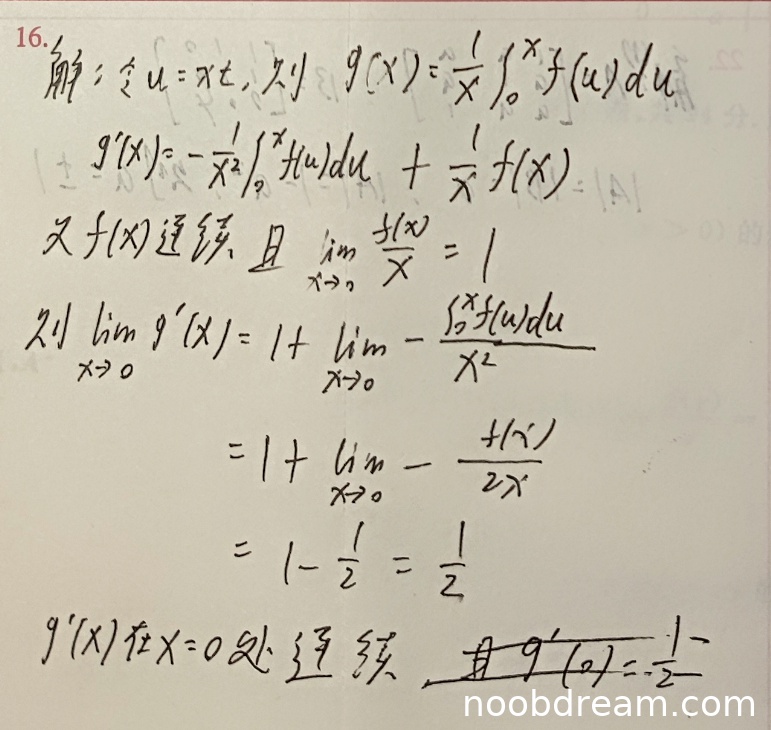 16.
解：令u=xt, 则 g(x)=\frac{1}{x}∫_0^x f(u)du
g'(x)=-\frac{1}{x^2}∫_0^x f(u)du + \frac{1}{x}f(x)
又f(x)连续且 \lim_{x→0} \frac{f(x)}{x} = 1
则 \lim_{x→0} g'(x)= 1+ \lim_{x→0} - \frac{∫_0^x f(u)du}{x^2}
= 1+ \lim_{x→0} - \frac{f(x)}{2x}
= 1-\frac{1}{2} = \frac{1}{2}
g'(x)在x=0处连续 且g'(0)=\frac{1}{2}
noobdream.com